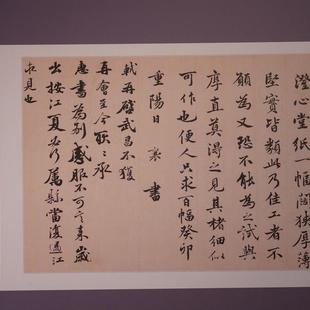 澄心堂紙一幅闊狹厚薄
堅實皆類此乃佳工者不
願為又恐不能為之試與
厚直莫得之見其楮細似
可作也便人只求百幅癸卯
重陽日 襄 書
軾再啓武昌不獲
再會至今耿耿承
惠書為別感服不可言來歲
出按江夏必乃屬縣當復過江
見也